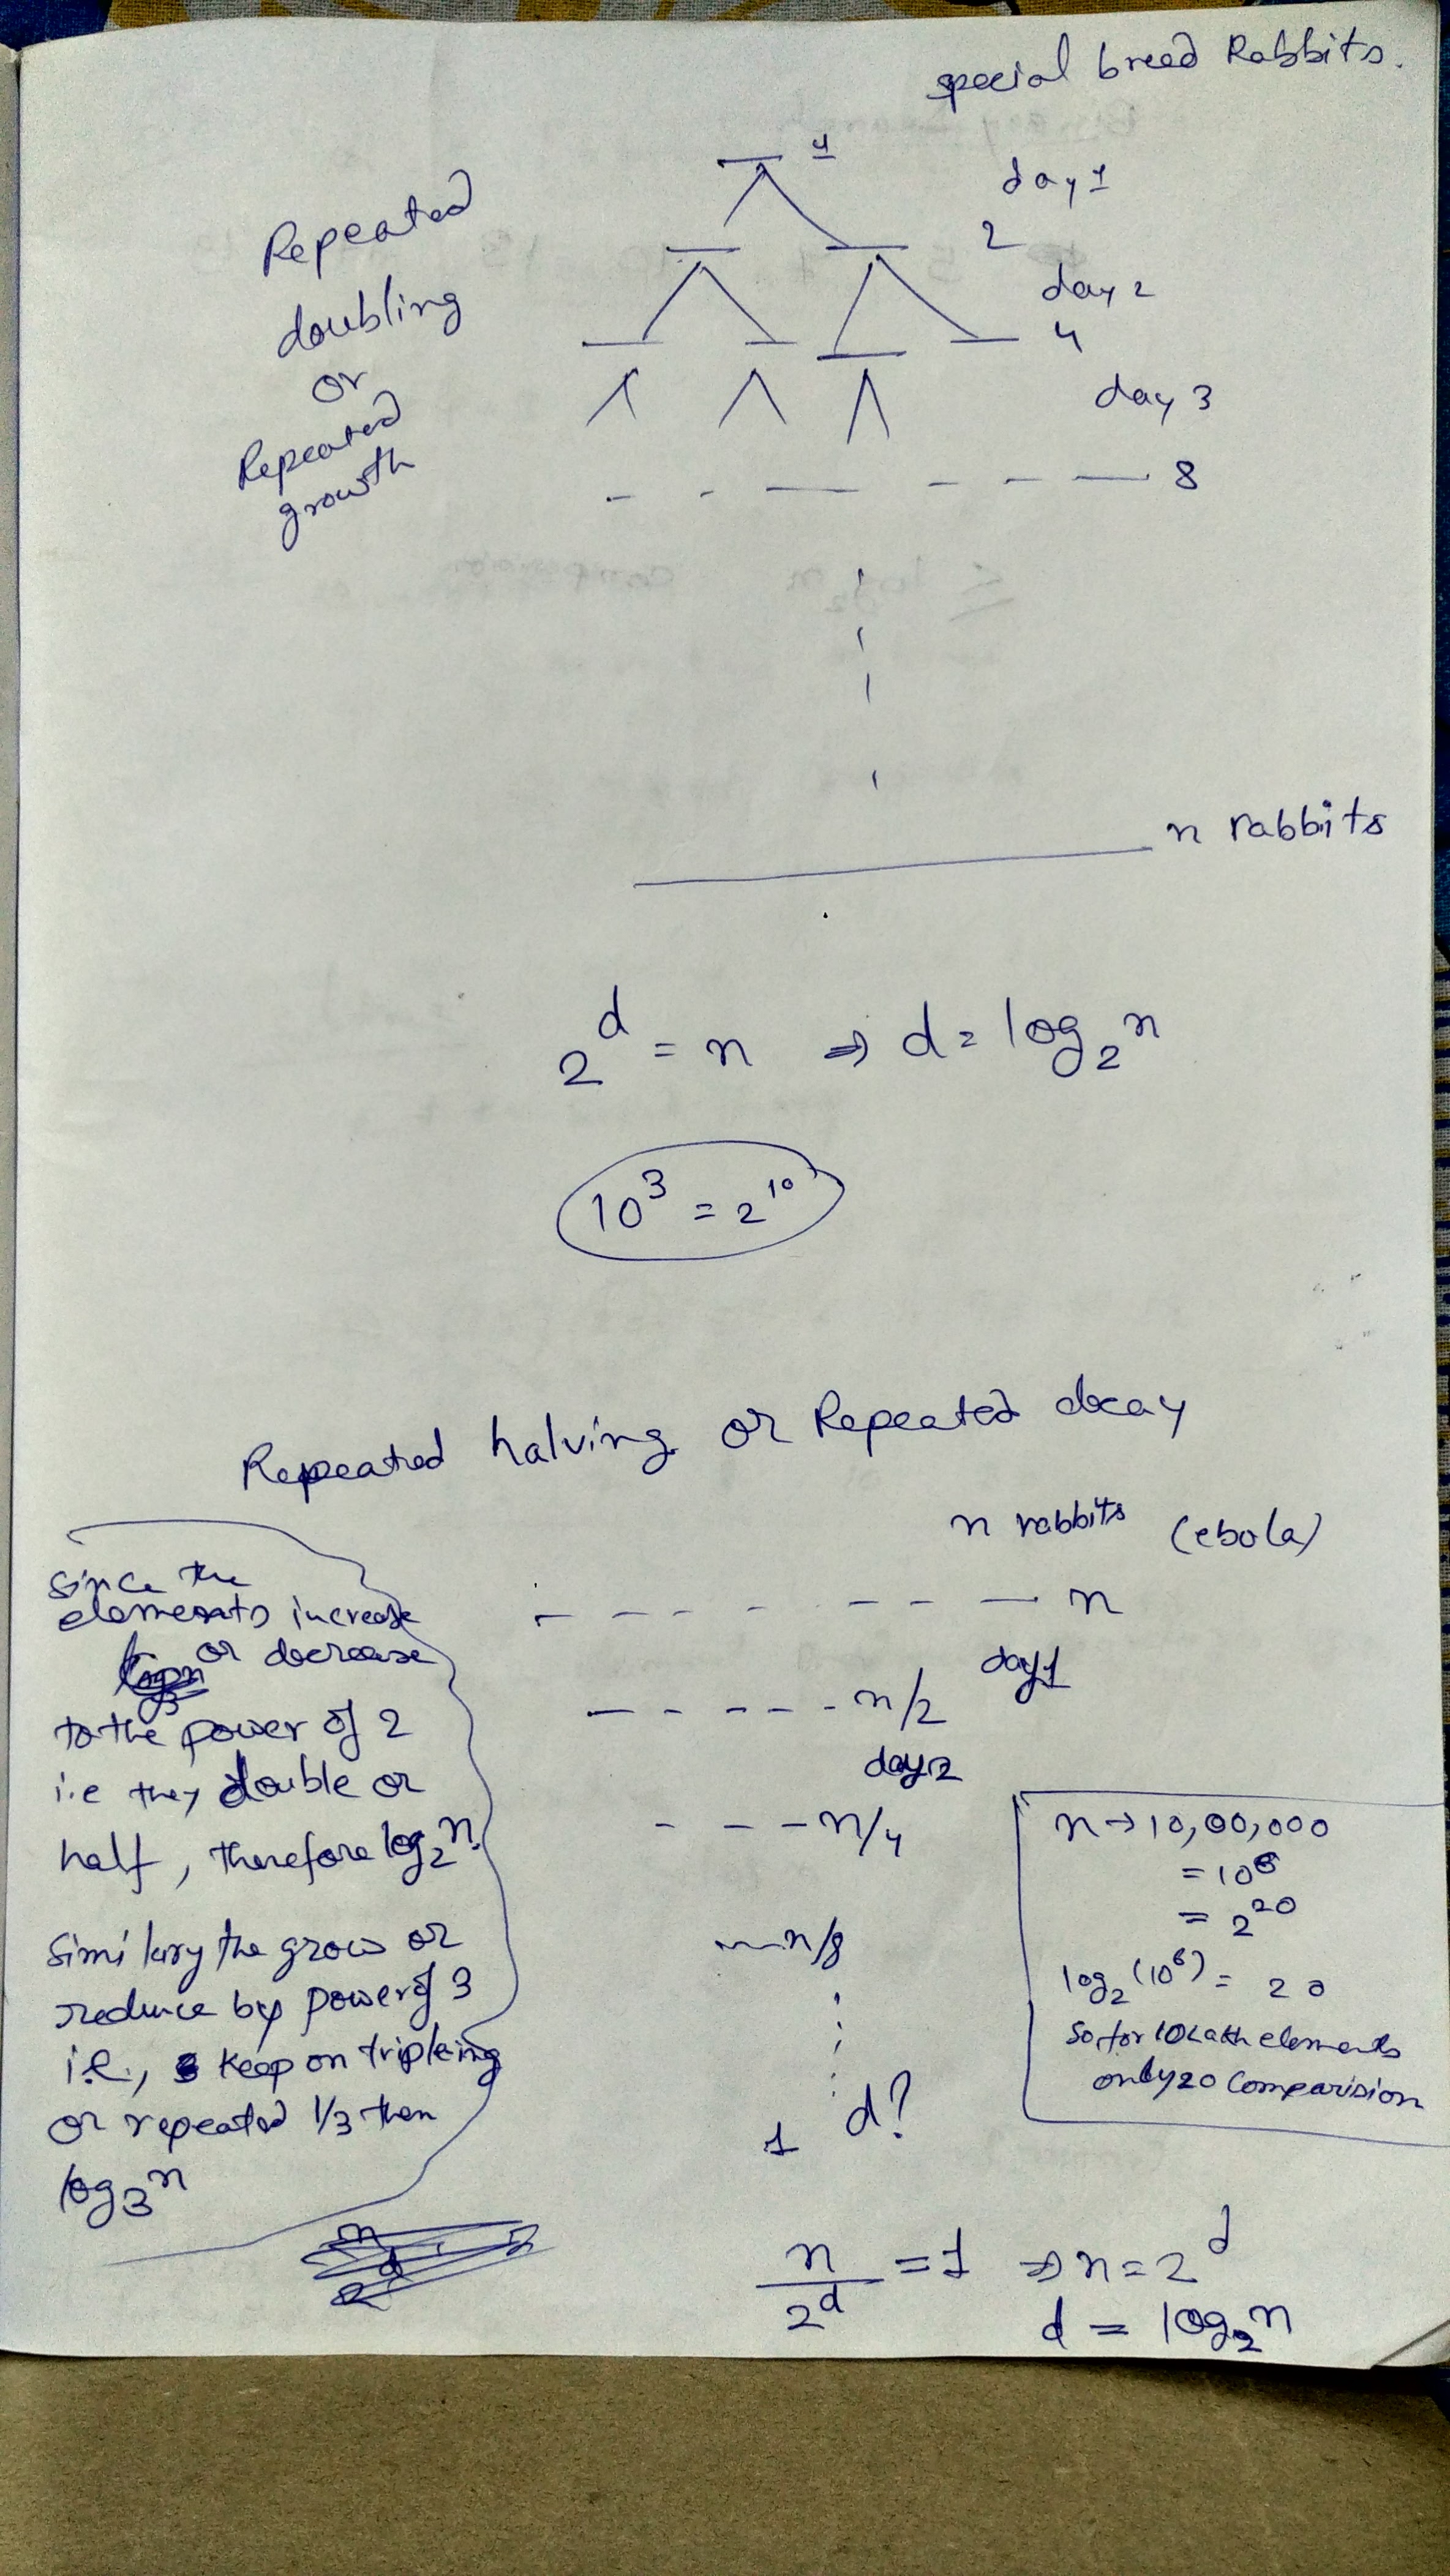 special breed Rabbits.
1
day 1
2
day 2
4
day 3
8
Repeated
doubling
or
Repeated
growth
n rabbits
2^d = n ⇒ d = log₂n
10³ = 2¹⁰
Repeated halving or Repeated decay
n rabbits (ebola)
n
day1
n/2
day2
n/4
n/8
d?
1
n/2^d = 1 ⇒ n = 2^d
d = log₂n
since the
elements increase
or decrease
to the power of 2
i.e they double or
half, therefore log₂n.
Similary the grow or
reduce by power of 3
i.e., keep on tripleing
or repeated 1/3 then
log₃n
n → 10,00,000
= 10⁶
= 2²⁰
log₂(10⁶) = 20
So for 10Lakh elements
only 20 Comparision